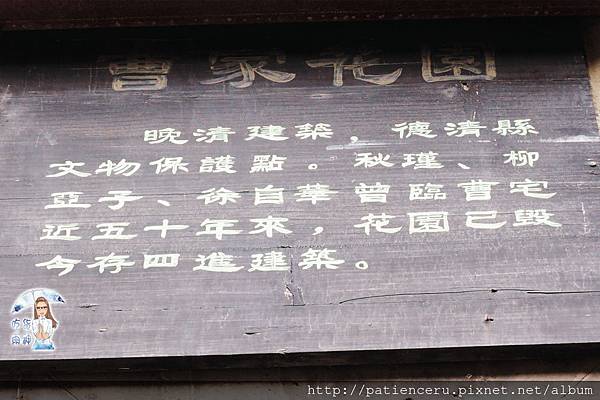 曹家花園
晚清建築，德清縣
文物保護點。秋瑾、柳
亞子、徐自華曾臨曹宅
近五十年來，花園已毀
今存四進建築。
http://patienceru.pixnet.net/album